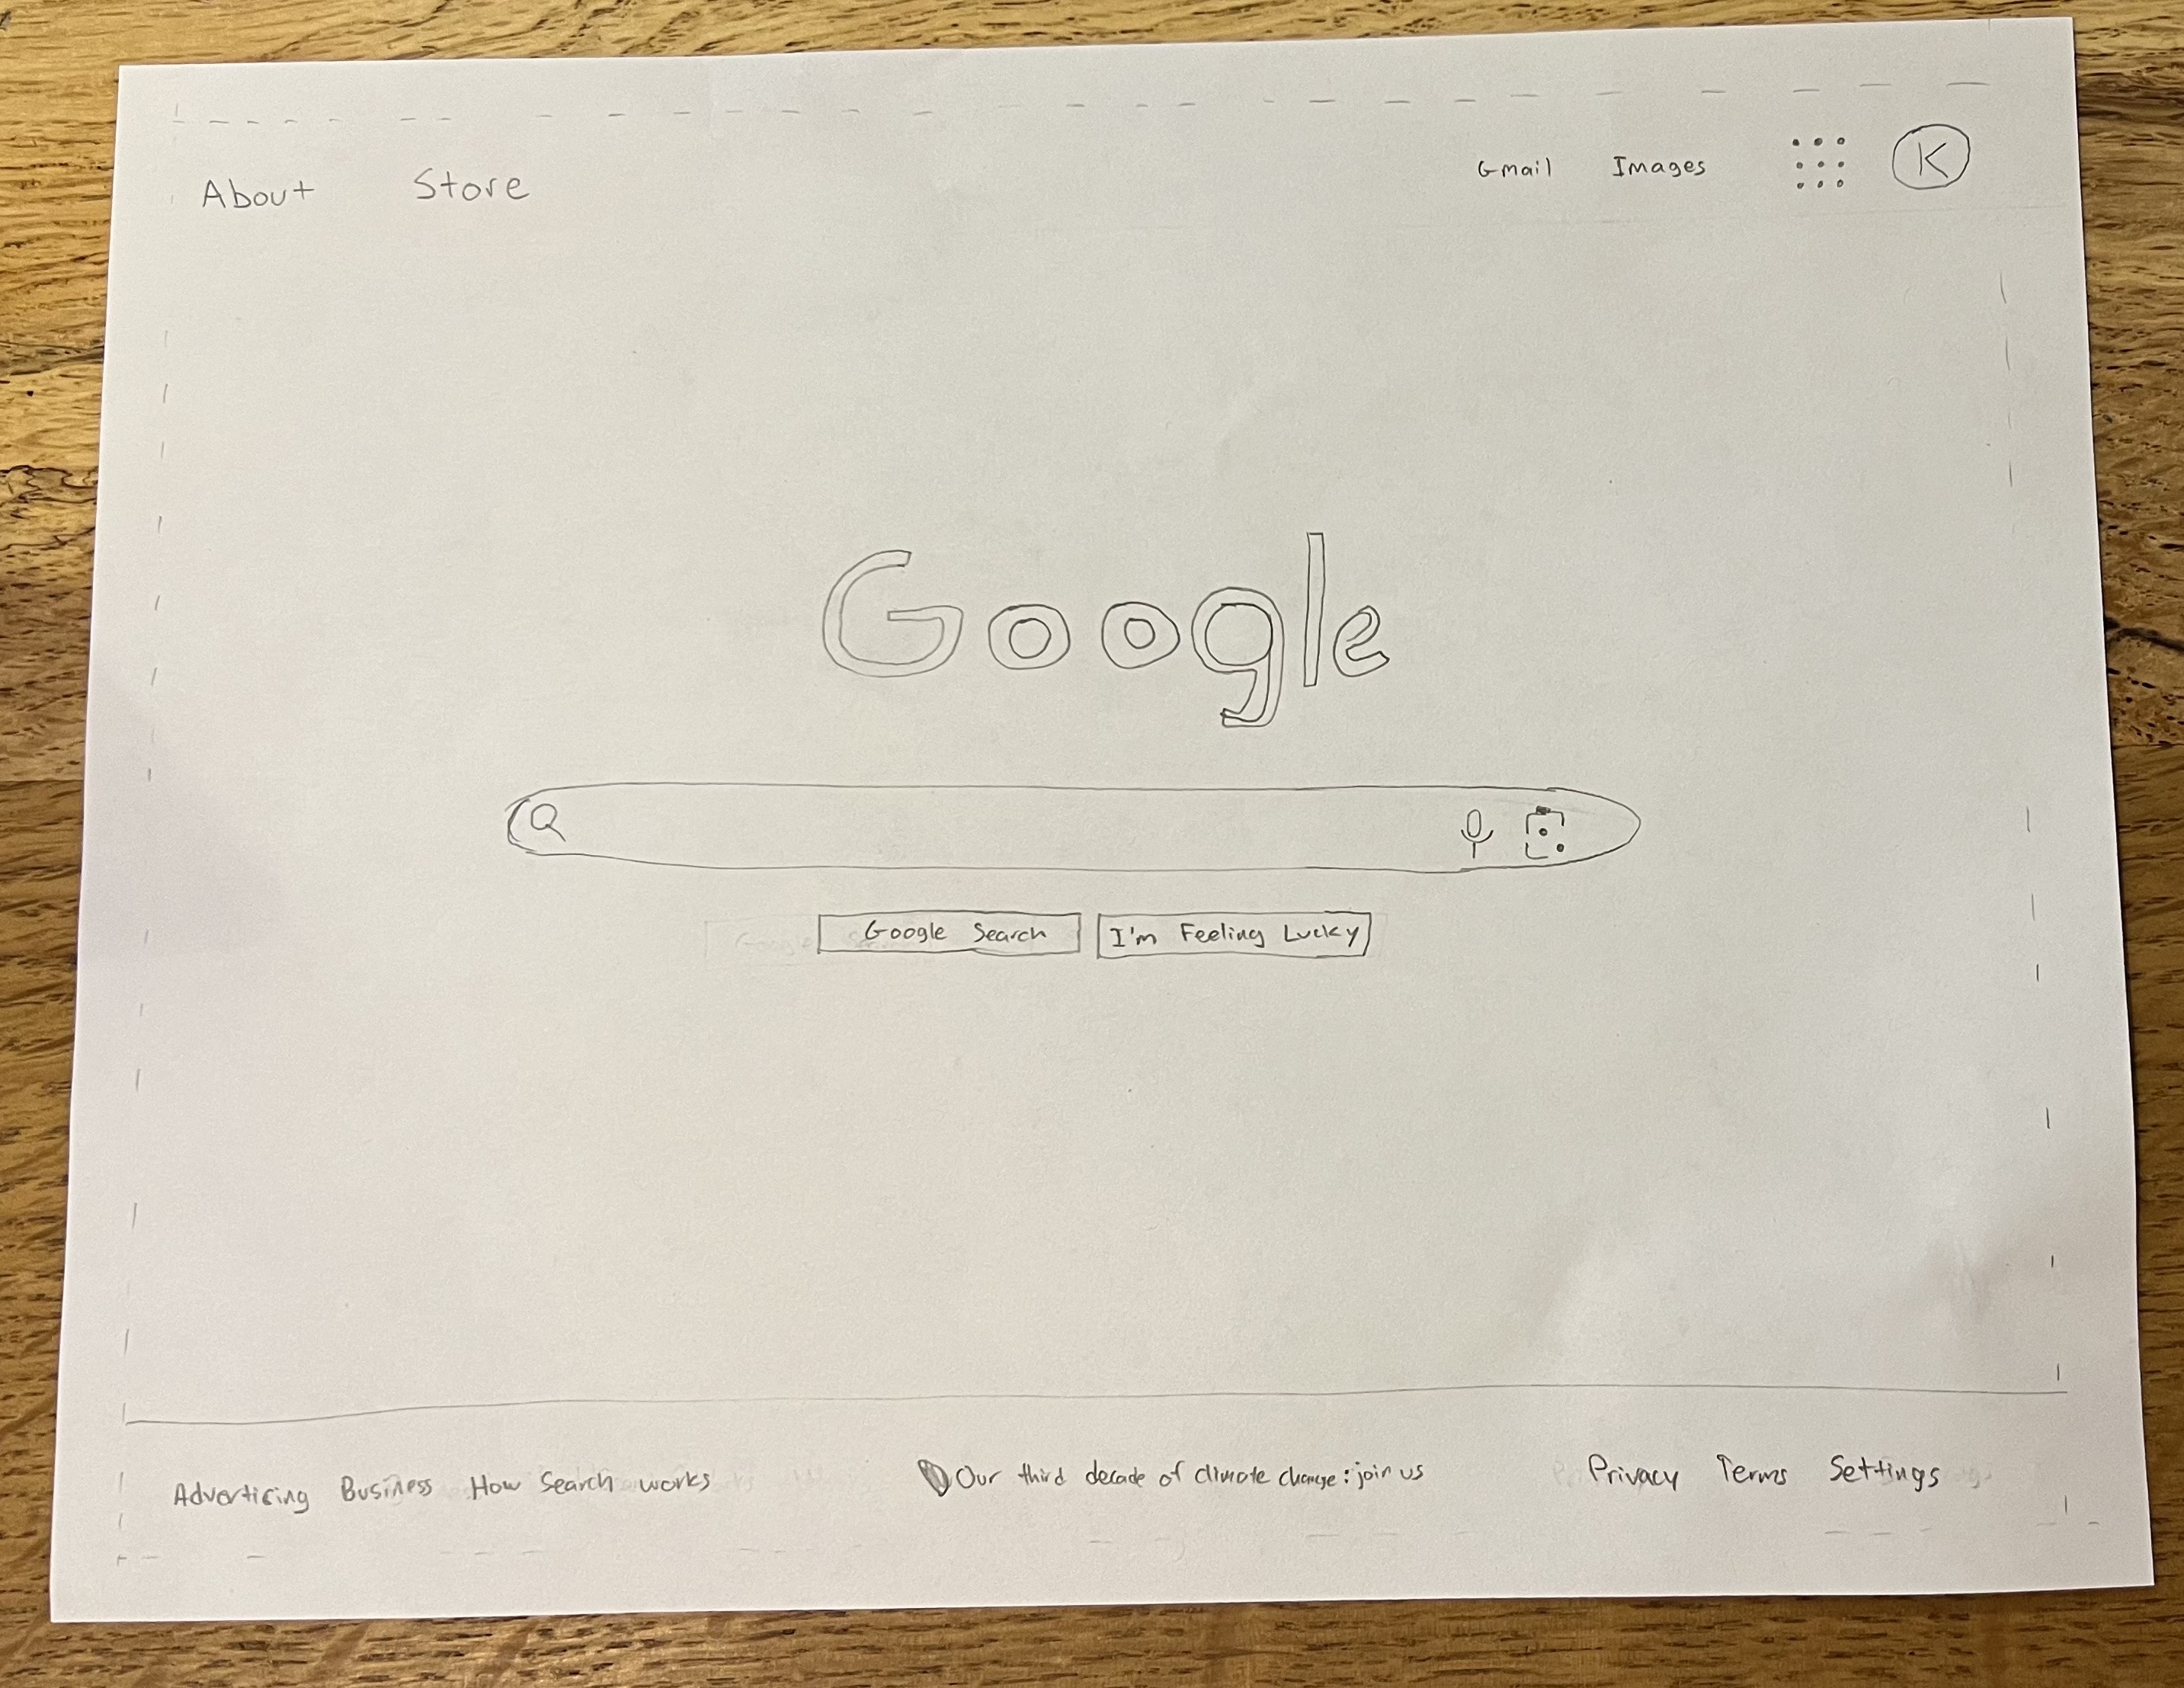 About Store
Gmail Images K
Google
Google Search I'm Feeling Lucky
Advertising Business How Search works
Our third decade of climate change: join us
Privacy Terms Settings